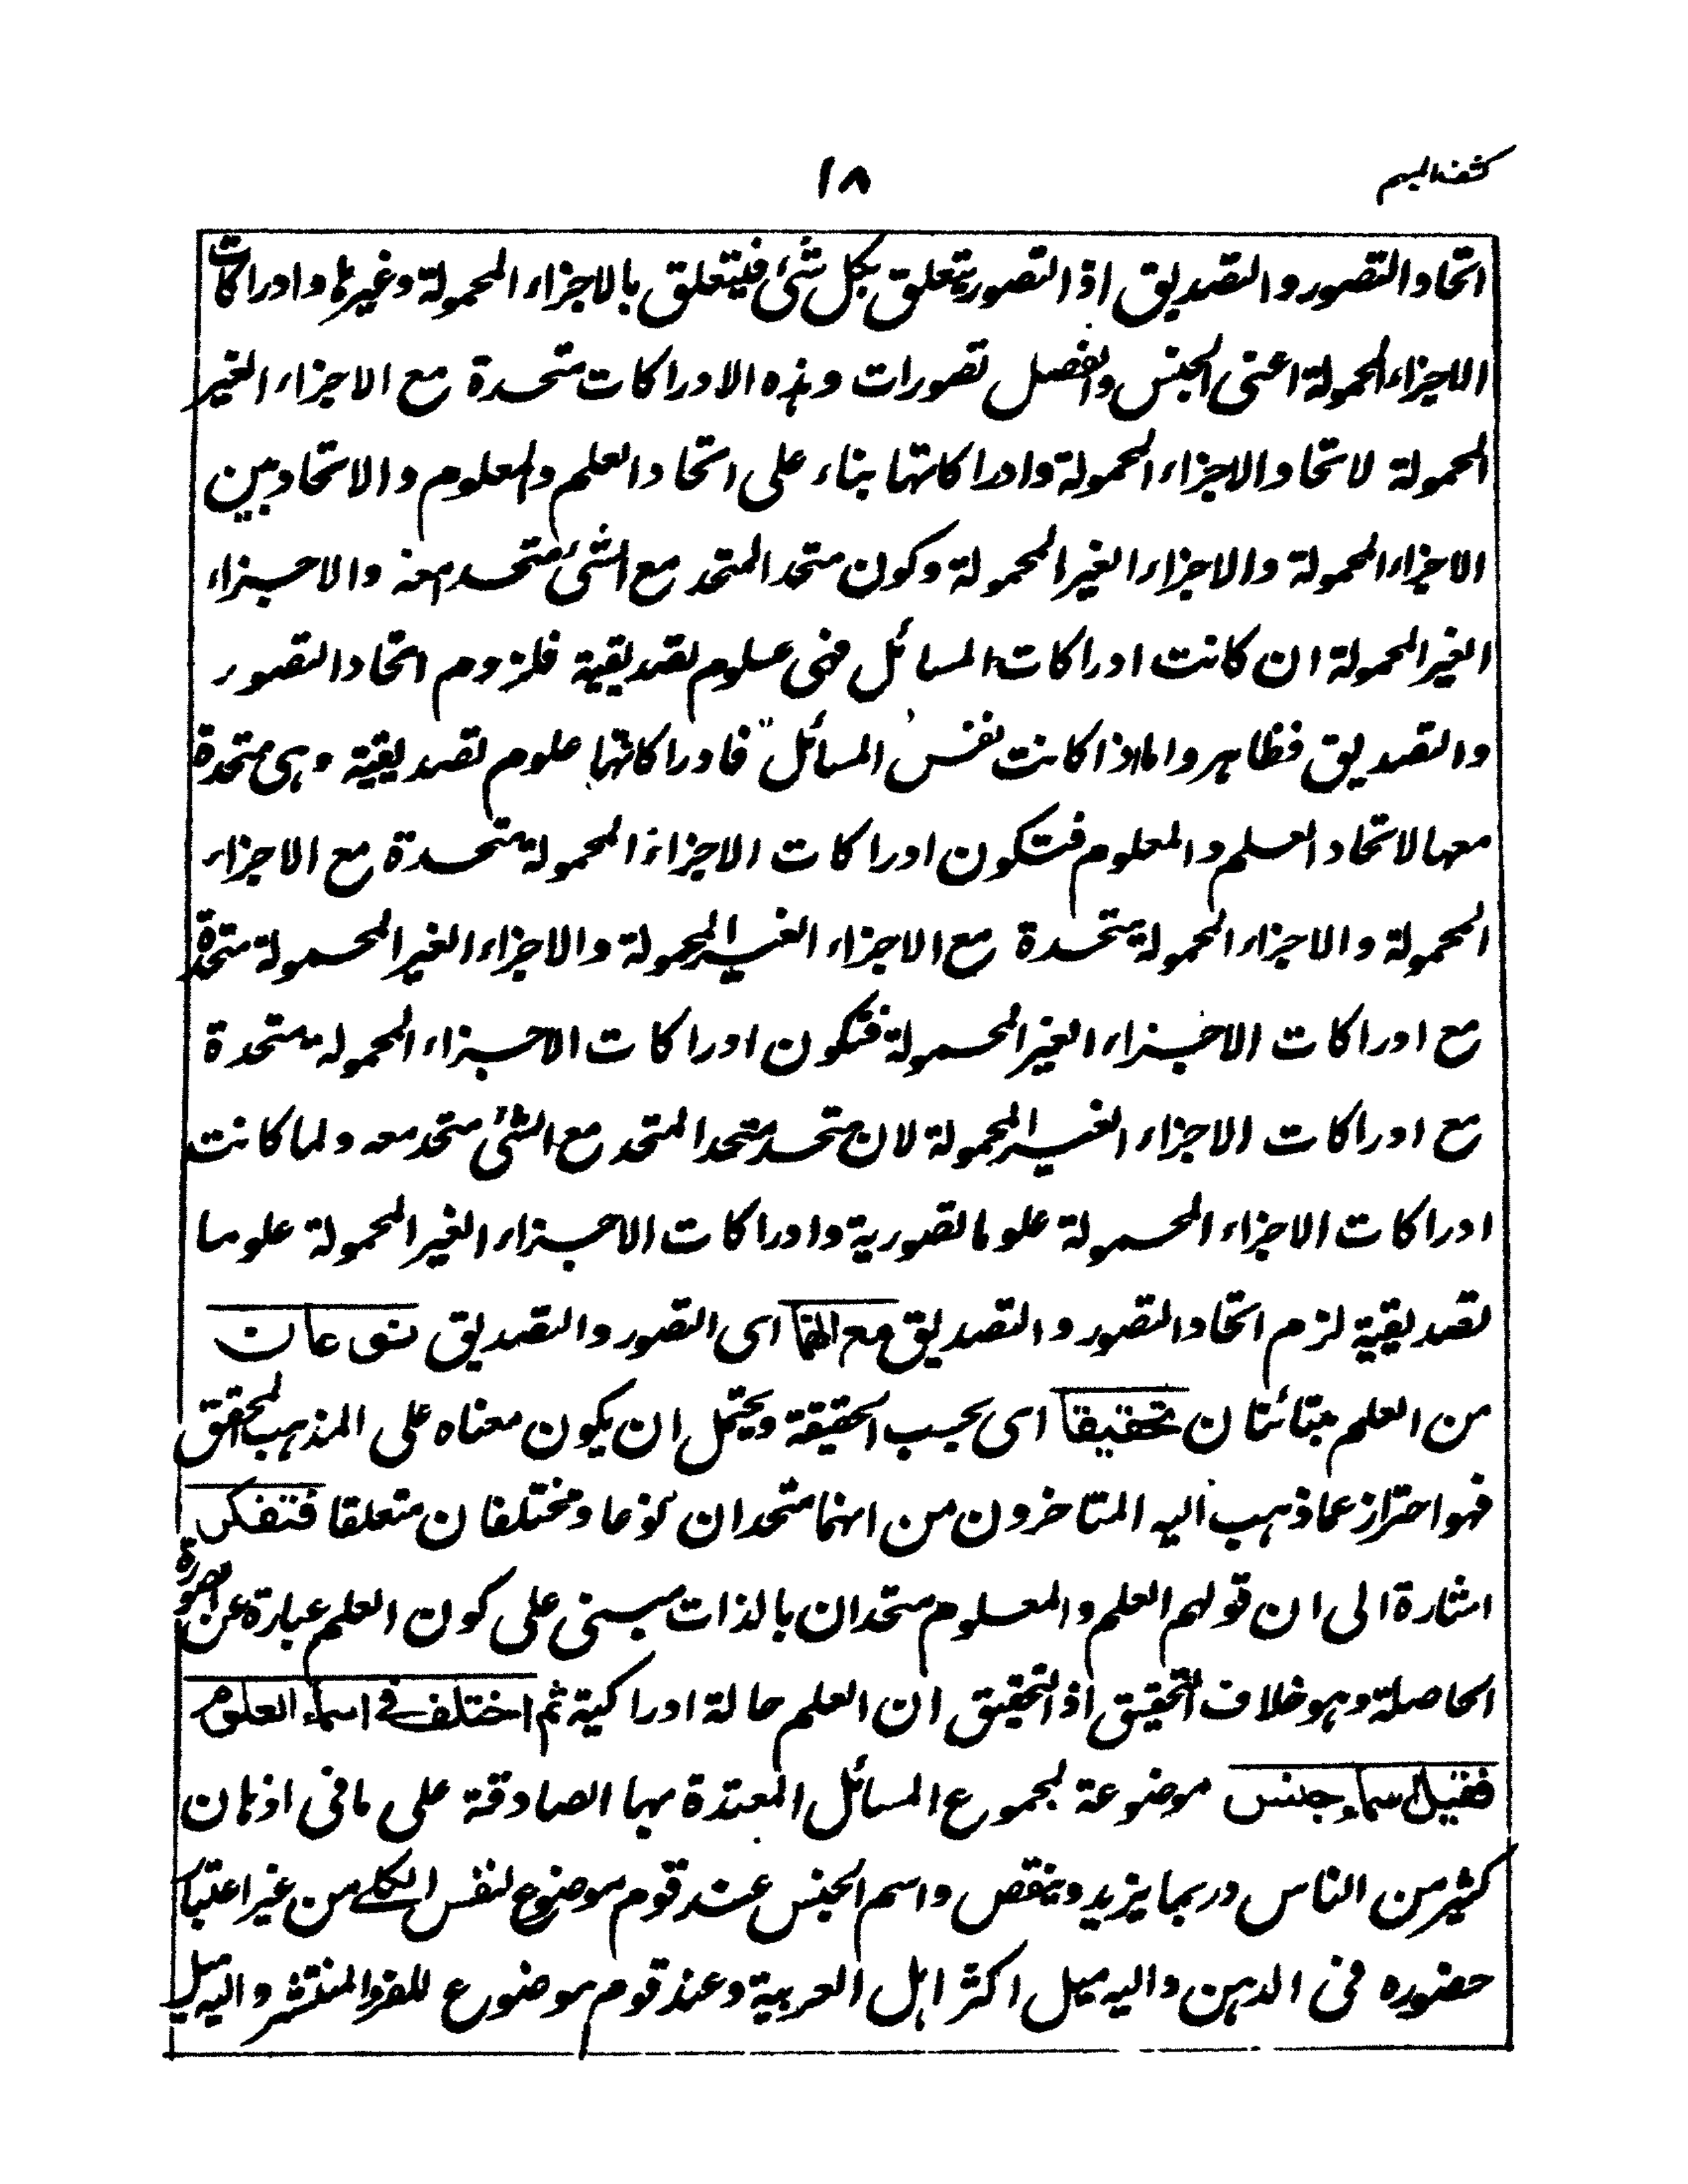 كشف المبهم
١٨
اتحاد التصور والتصديق اذ التصور يتعلق بكل شئ فيتعلق بالاجزاء المحمولة وغيرها وادراكات
الاجزاء المحمولة اعنى الجنس والفصل تصورات وهذه الادراكات متحدة مع الاجزاء الغير
المحمولة لاتحاد الاجزاء المحمولة وادراكاتها بناء على اتحاد العلم والمعلوم والاتحاد بين
الاجزاء المحمولة والاجزاء الغير المحمولة وكون متحد المتحد مع الشئ متحد معه والاجزاء
الغير المحمولة ان كانت ادراكات المسائل فهى علوم تصديقية فلزوم اتحاد التصور
والتصديق فظاهر واما اذا كانت نفس المسائل فادراكاتها علوم تصديقية وهى متحدة
معها لاتحاد العلم والمعلوم فتكون ادراكات الاجزاء المحمولة متحدة مع الاجزاء
المحمولة والاجزاء المحمولة متحدة مع الاجزاء الغير المحمولة والاجزاء الغير المحمولة متحدة
مع ادراكات الاجزاء الغير المحمولة فتكون ادراكات الاجزاء المحمولة متحدة
مع ادراكات الاجزاء الغير المحمولة لان متحد متحد المتحد مع الشئ متحد معه ولما كانت
ادراكات الاجزاء المحمولة علوما تصورية وادراكات الاجزاء الغير المحمولة علوما
تصديقية لزم اتحاد التصور والتصديق مع انهما اى التصور والتصديق نوعان
من العلم متبائنان تحقيقا اى بحسب الحقيقة ويحتمل ان يكون معناه على المذهب المحقق
فهو احتراز عما ذهب اليه المتاخرون من انهما متحدان نوعا ومختلفان متعلقا فتفكر
اشارة الى ان قولهم العلم والمعلوم متحدان بالذات مبنى على كون العلم عبارة عن الصورة
الحاصلة وهو خلاف التحقيق اذ التحقيق ان العلم حالة ادراكية ثم اختلف فى اسماء العلوم
فقيل اسماء جنس موضوعة لمجموع المسائل المعتدة بها الصادقة على ما فى اذهان
كثير من الناس وربما يزيد وينقص واسم الجنس عند قوم موضوع لنفس الكلى من غير اعتبار
حضوره فى الذهن واليه ميل اكثر اهل العربية وعند قوم موضوع للفرد المنتشر واليه ميل